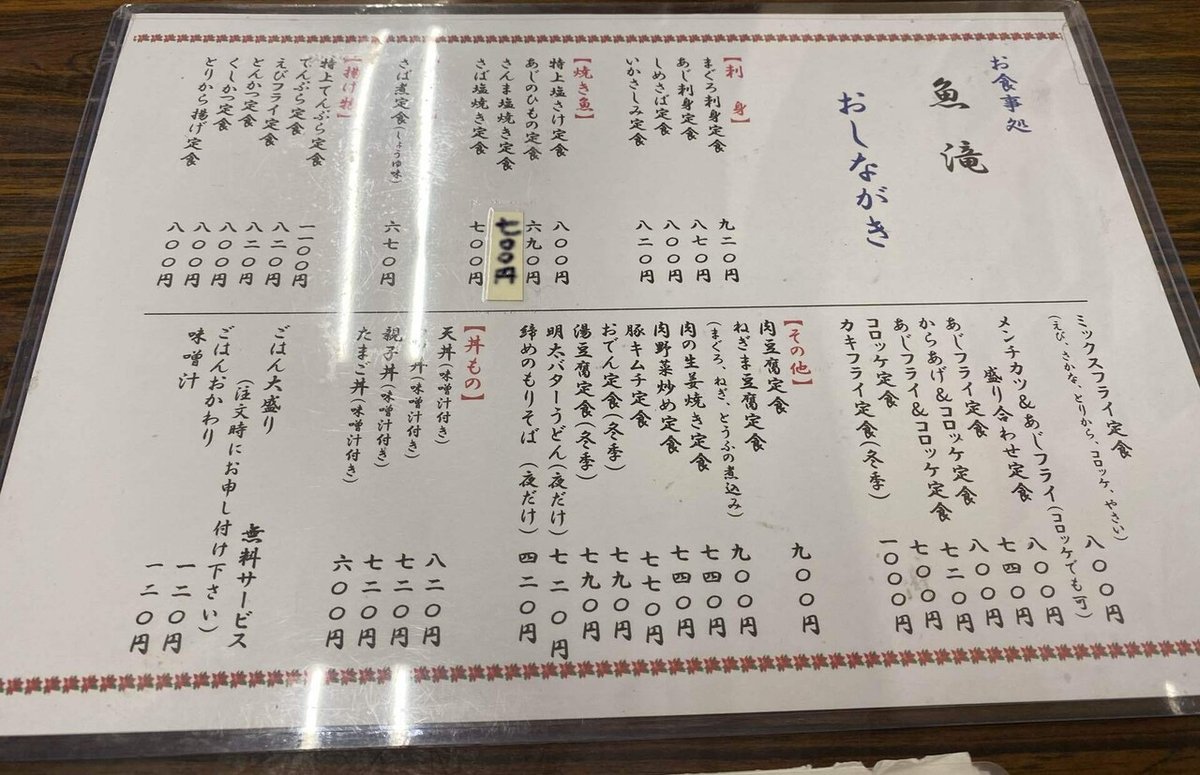 お食事処
魚滝
おしながき
【刺身】
まぐろ刺身定食 九二〇円
あじ刺身定食 八七〇円
しめさば定食 八〇〇円
いかさしみ定食 八二〇円
【焼き魚】
特上塩さけ定食 八〇〇円
あじのひもの定食 六九〇円
さんま塩焼き定食 七〇〇円
さば塩焼き定食 七〇〇円
さば煮定食(しょうゆ味) 六七〇円
【揚げ物】
特上てんぷら定食 一一〇〇円
てんぷら定食 八二〇円
えびフライ定食 八二〇円
とんかつ定食 八〇〇円
くしかつ定食 八〇〇円
とりから揚げ定食 八〇〇円
ミックスフライ定食 八〇〇円
(えび、さかな、とりから、コロッケ、やさい)
メンチカツ&あじフライ(コロッケでも可) 八〇〇円
盛り合わせ定食
あじフライ定食 七四〇円
からあげ&コロッケ定食 八〇〇円
あじフライ&コロッケ定食 七二〇円
コロッケ定食 七〇〇円
カキフライ定食(冬季) 一〇〇〇円
【その他】
肉豆腐定食 九〇〇円
ねぎま豆腐定食 九〇〇円
(まぐろ、ねぎ、とうふの煮込み)
肉の生姜焼き定食 七四〇円
肉野菜炒め定食 七四〇円
豚キムチ定食 七七〇円
おでん定食(冬季) 七九〇円
湯豆腐定食(冬季) 七九〇円
明太バターうどん(夜だけ) 七二〇円
締めのもりそば(夜だけ) 四二〇円
【丼もの】
天丼(味噌汁付き) 八二〇円
丼(味噌汁付き) 七二〇円
親子丼(味噌汁付き) 七二〇円
たまご丼(味噌汁付き) 六〇〇円
ごはん大盛り 無料サービス
(注文時にお申し付け下さい)
ごはんおかわり 一二〇円
味噌汁 一二〇円